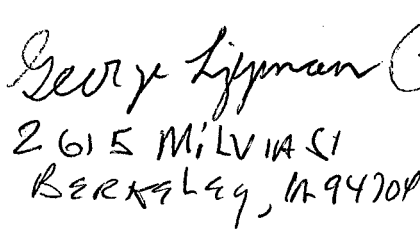 George Lippman
2615 MiLVIA St
BERKELEY, CA 94704